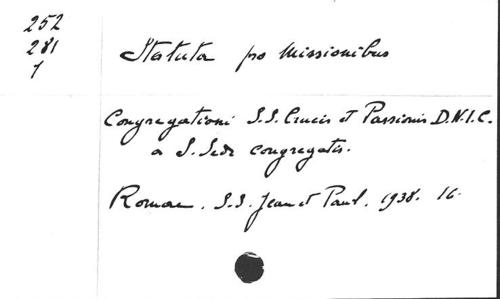 252
281
7
Statuta pro Missionibus
Congregationi S.S. Crucis et Passionis D.N.I.C.
a S. Sede congregatis.
Romae. S.S. Jean et Paul. 1938. 16.